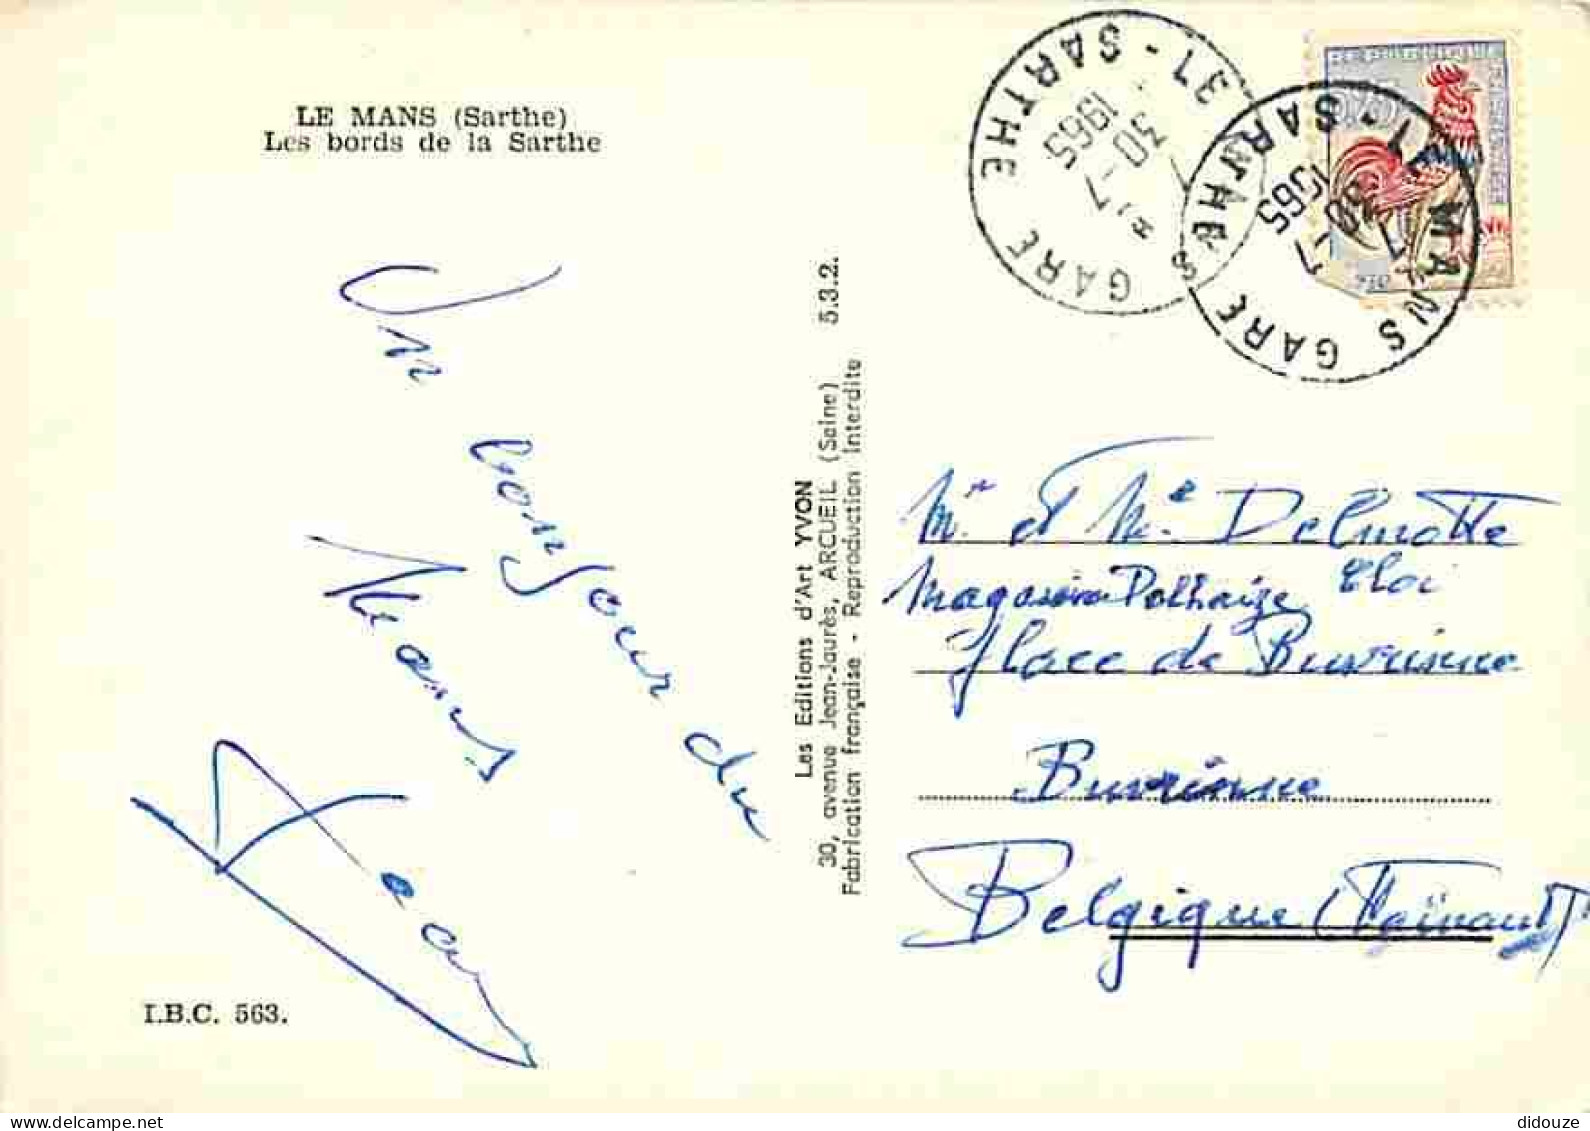 LE MANS (Sarthe)
Les bords de la Sarthe
Un
bonjour du
Mans
I.B.C. 563.
Les Editions d'Art YVON 5.3.2.
30, avenue Jean-Jaurès, ARCUEIL (Seine)
Fabrication française - Reproduction Interdite
GARE 37 - SARTHE
30-7
1965
MANS GARE - SARTHE
30-7
1965
Mr et Me Delmotte
Magasin Delhaize Eloi
Place de Buvrinne
Buvrinne
Belgique (Hainaut)
delcampe.net
didouze